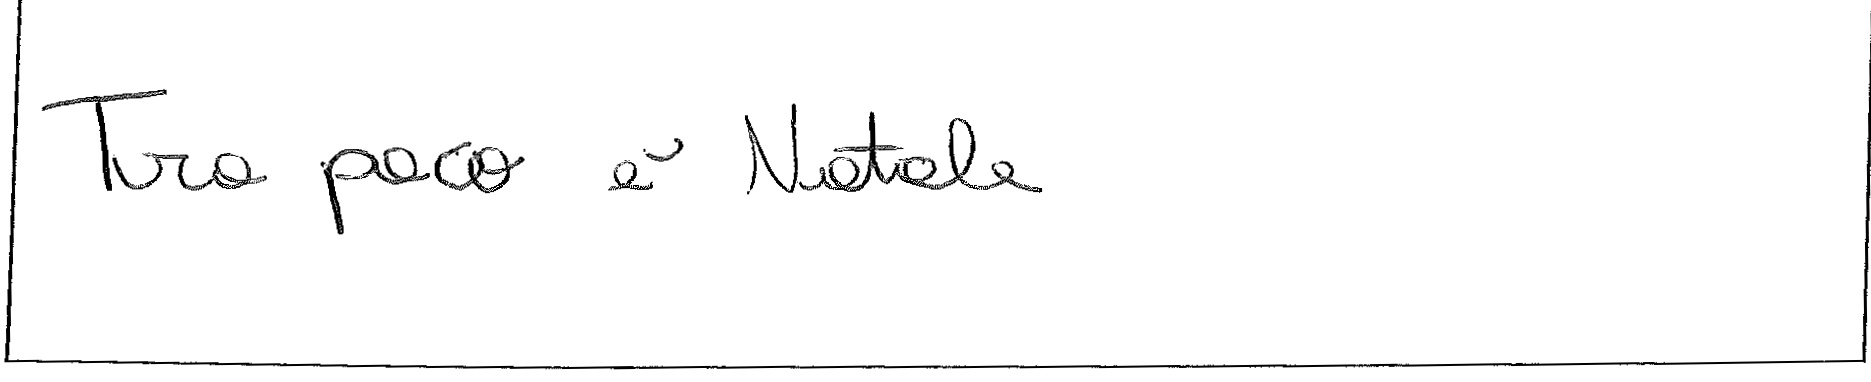 Tra poco è Natale